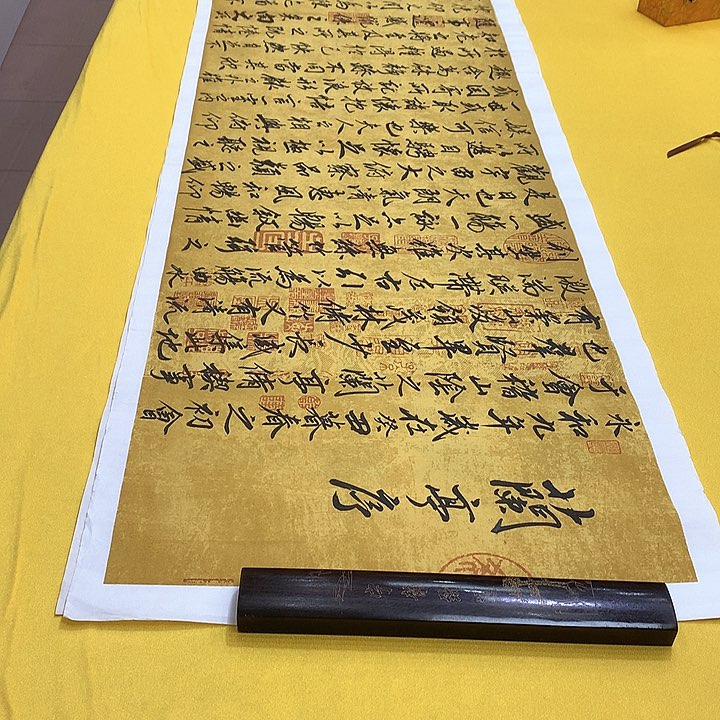 蘭亭序
永和九年歲在癸丑暮春之初會
于會稽山陰之蘭亭脩禊事
也群賢畢至少長咸集此地
有崇山峻領茂林脩竹又有清流
激湍暎帶左右引以為流觴曲水
列坐其次雖無絲竹管弦之
盛一觴一詠亦足以暢敘幽情
是日也天朗氣清惠風和暢仰
觀宇宙之大俯察品類之盛
所以遊目騁懷足以極視聽之
娛信可樂也夫人之相與俯仰
一世或取諸懷抱悟言一室之內
或因寄所託放浪形骸之外雖
趣舍萬殊靜躁不同當其欣
於所遇暫得於己怏然自足不
知老之將至及其所之既倦情